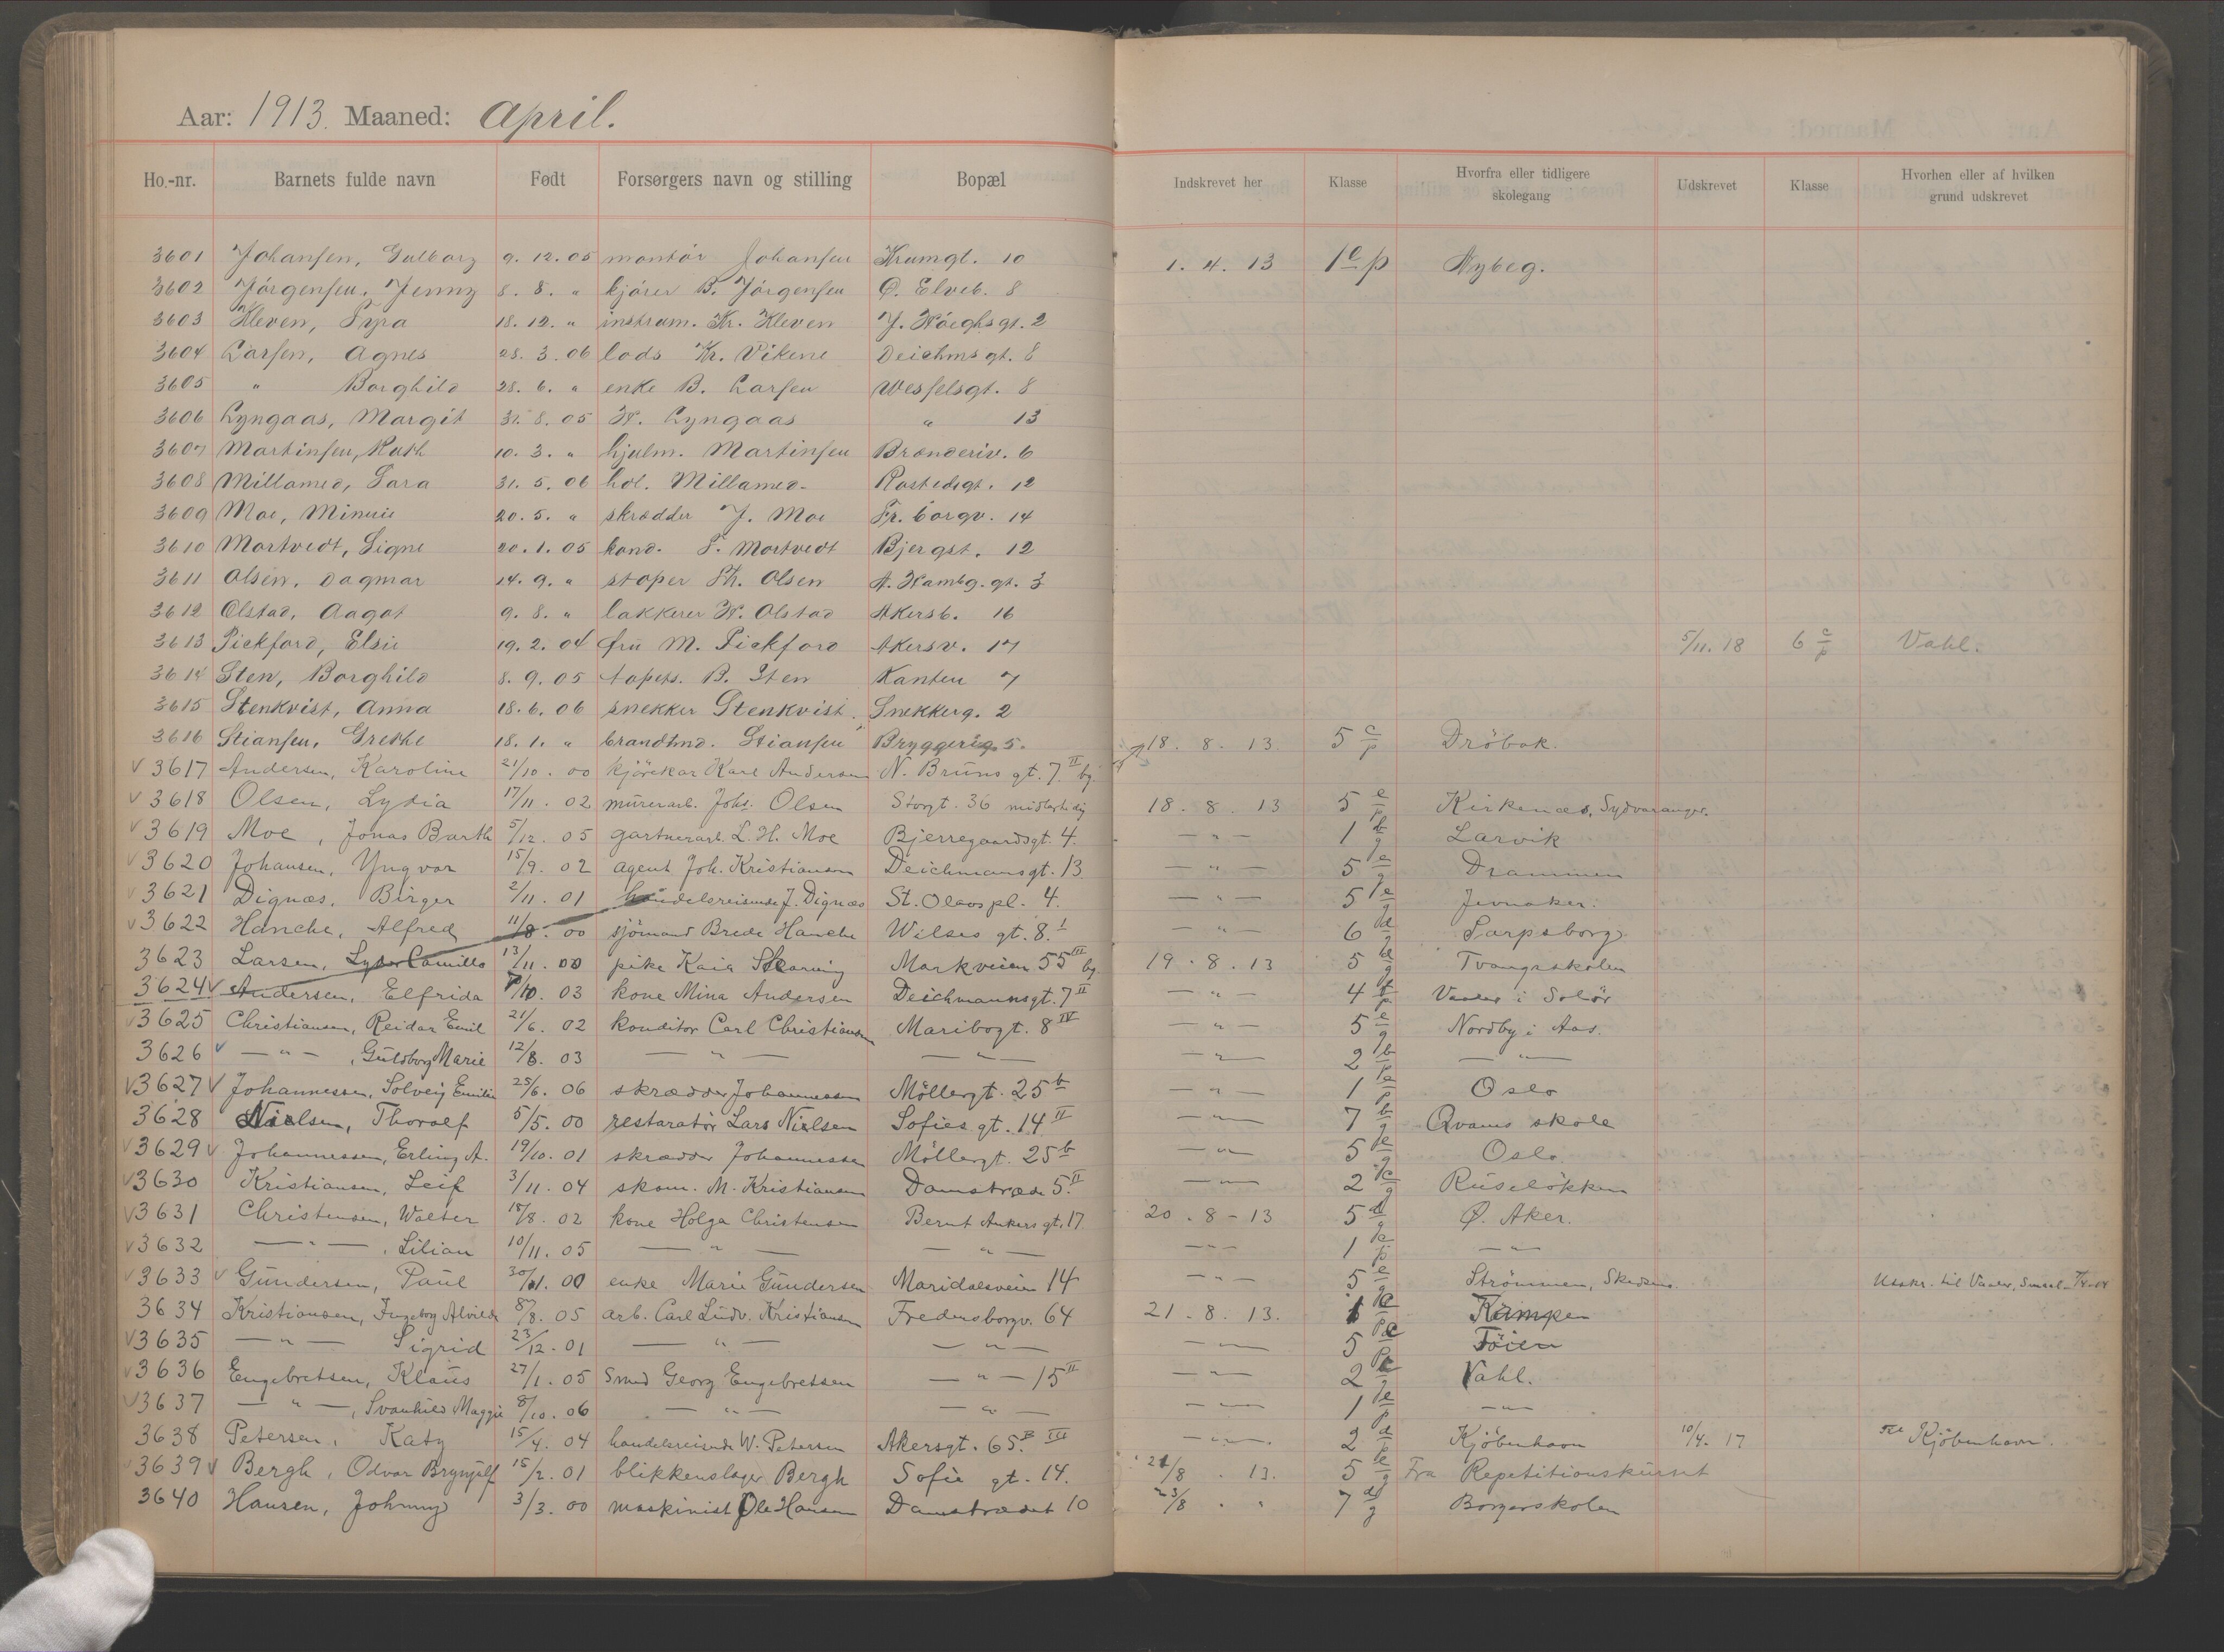 Aar: 1913. Maaned: April.
Ho.-nr. Barnets fulde navn Født Forsørgers navn og stilling Bopæl Indskrevet her Klasse Hvorfra eller tidligere skolegang Udskrevet Klasse Hvorhen eller af hvilken grund udskrevet
3601 Johansen, Gulborg 9. 12. 05 montör Johansen Krumgt. 10 1. 4. 13 1 e p Nybeg.
3602 Jörgensen, Jenny 8. 8. " kjörer B. Jörgensen Ö. Elveb. 8
3603 Kleven, Tyra 18. 12. " instrum. Kr. Kleven J. Höeghsgt. 2
3604 Larsen, Agnes 28. 3. 06 lods Kr. Vikene Deichmsgt. 8
3605 " Borghild 28. 6. " enke B. Larsen Wesselsgt. 8
3606 Lyngaas, Margit 31. 8. 05 H. Lyngaas " 13
3607 Martinsen, Ruth 10. 3. " hjulm. Martinsen Brænderiv. 6
3608 Millamed, Sara 31. 5. 06 hdl. Millamed. Rostedsgt. 12
3609 Moe, Minnie 20. 5. " skrædder J. Moe Fr. borgv. 14
3610 Mortvedt, Signe 20. 1. 05 kond. S. Mortvedt Bjergst. 12
3611 Olsen, Dagmar 14. 9. " støper Th. Olsen A. Hambg. gt. 3
3612 Olstad, Aagot 9. 8. " lakkerer H. Olstad Akersb. 16
3613 Pickford, Elsie 19. 2. 04 fru M. Pickford Akersv. 17 5/11. 18 6 c p Vahl.
3614 Sten, Borghild 8. 9. 05 tapets. B. Sten Kanten 7
3615 Stenkvist, Anna 18. 6. 06 snekker Stenkvist. Snekkerg. 2
3616 Stiansen, Grethe 18. 1. " brandtmd. Stiansen Bryggerig. 5.
V 3617 Andersen, Karoline 21/10. 00 kjørekar Karl Andersen N. Bruns gt. 7 II bg. 18. 8. 13 5 c p Drøbak.
V 3618 Olsen, Lydia 17/11. 02 murerarb. Johs. Olsen Storgt. 36 midlertidig 18. 8. 13 5 e p Kirkenæs, Sydvaranger.
V 3619 Moe, Jonas Barth 5/12. 05 gartnerarb. L. H. Moe Bjerregaardsgt. 4. — " — 1 b g Larvik
V 3620 Johansen, Yngvar 15/9. 02 agent Joh. Kristiansen Deichmansgt. 13 — " — 5 e g Drammen
V 3621 Dignæs, Birger 2/11. 01 handelsreisende J. Dignæs St. Olavs pl. 4. — " — 5 e g Jevnaker.
V 3622 Hanche, Alfred 11/8. 00 sjömand Brede Hanche Wilses gt. 8. I — " — 6 d g Sarpsborg
3623 Larsen, Camillo 13/11. 00 pike Kaia Markveien 55 III bg 19. 8. 13 5 d g Tvangsskolen
3624 V Andersen, Elfrida /10. 03 kone Mina Andersen Deichmannsgt. 7 II — " — 4 p i Solör
V 3625 Christiansen, Reidar Emil 21/6. 02 konditor Carl Christiansen Maribogt. 8 IV — " — 5 e g Nordby i Aas.
3626 V — " — , Guldborg Marie 12/8. 03 — " — — " — — " — 2 b p — " —
V 3627 V Johannessen, Solveig Emilie 25/6. 06 skrædder Johannessen Möllergt. 25 b — " — 1 e p Oslo
3628 Nielsen, Thorolf 5/5. 00 restaratör Lars Nielsen Sofies gt. 14 II — " — 7 b g Qvams skole
V 3629 V Johannessen, Erling A. 19/10. 01 skrædder Johannessen Möllergt. 25 b — " — 5 e g Oslo
V 3630 Kristiansen, Leif 3/11. 04 skom. M. Kristiansen Damstræde 5. II — " — 2 c g Ruseløkken
V 3631 Christensen, Walter 18/8. 02 kone Holga Christensen Bernt Ankers gt. 17 20. 8 - 13 5 d g Ø. Aker.
V 3632 — " — , Lilian 10/11. 05 — " — — " — — " — 1 e p — " —
V 3633 V Gundersen, Paul 30/1. 00 enke Marie Gundersen Maridalsveien 14 — " — 5 e g Strömmen, Skedsmo. Utskr. til Vaaler,
3634 Kristiansen, Ingeborg Alvilde 8/8. 05 arb. Carl Ludv. Kristiansen Fredensborgv. 64 21. 8. 13. 1 e Kampen
V 3635 — " — Sigrid 23/12. 01 — " — — " — — " — 5 Töien
V 3636 Engebretsen, Klaus 27/1. 05 Smed Georg Engebretsen — " — 15 II — " — 2 g Vahl.
V 3637 — " — , Svanhild Maggie 8/10. 06 — " — — " — — " — 1 e p — " —
3638 Petersen, Katy 15/4. 04 handelsreisende W. Petersen Akersgt. 65. B III — " — 2 d p Kjöbenhavn 10/4. 17 Til Kjöbenhavn.
V 3639 V Bergh, Odvar Brynjulf 15/2. 01 blikkenslager Bergh Sofie gt. 14. 21/8. 13. 5 e g Fra Repetitionskurset
3640 Hansen, Johnny 3/3. 00 maskinist Ole Hansen Damstrædet 10 23/8 " " 7 d g Borgerskolen